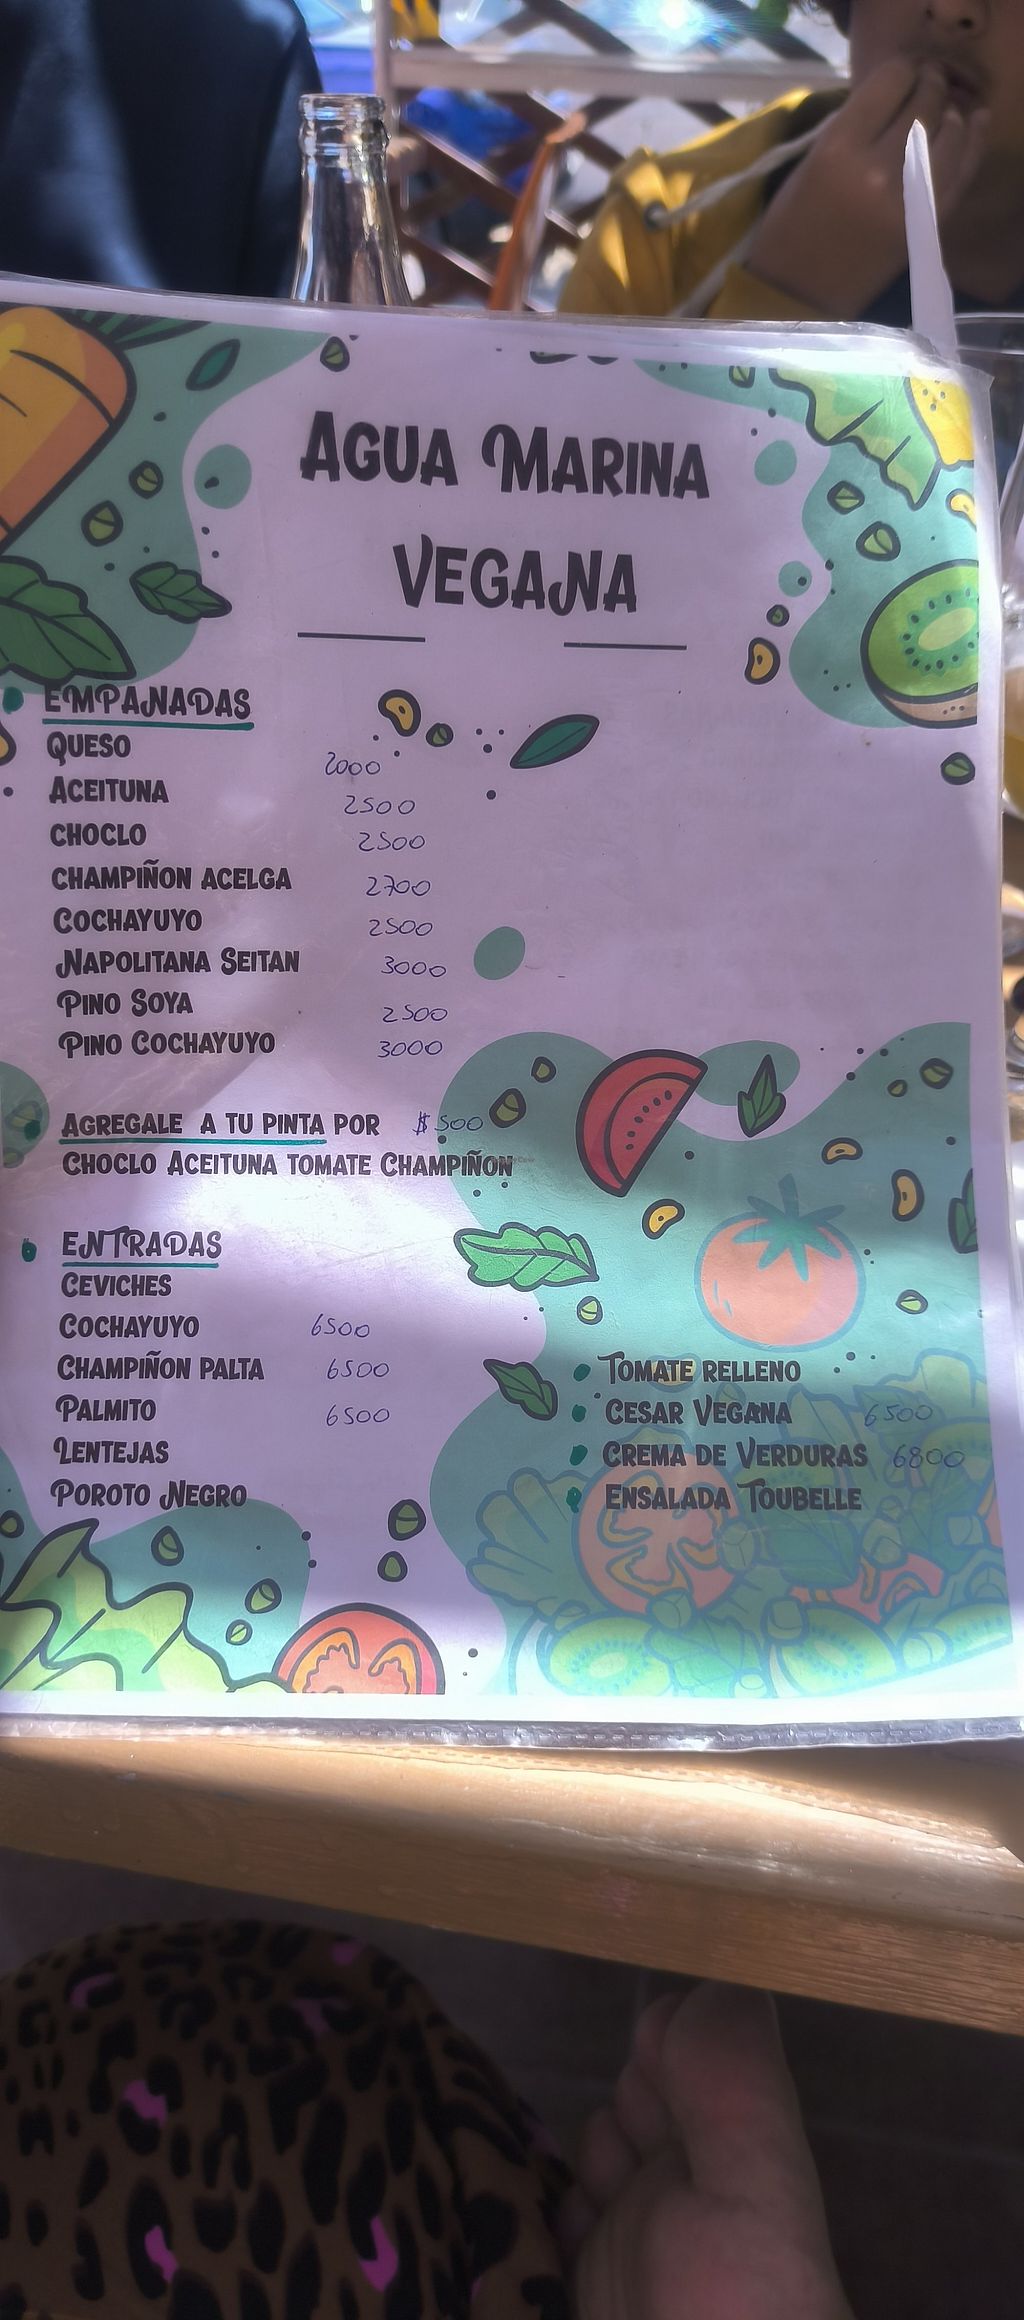 AGUA MARINA
VEGANA
EMPANADAS
QUESO 2000
ACEITUNA 2500
CHOCLO 2500
CHAMPIÑON ACELGA 2700
COCHAYUYO 2500
NAPOLITANA SEITAN 3000
PINO SOYA 2500
PINO COCHAYUYO 3000
AGREGALE A TU PINTA POR $500
CHOCLO ACEITUNA TOMATE CHAMPIÑON
ENTRADAS
CEVICHES
COCHAYUYO 6500
CHAMPIÑON PALTA 6500
PALMITO 6500
LENTEJAS
POROTO NEGRO
TOMATE RELLENO
CESAR VEGANA 6500
CREMA DE VERDURAS 6800
ENSALADA TOUBELLE